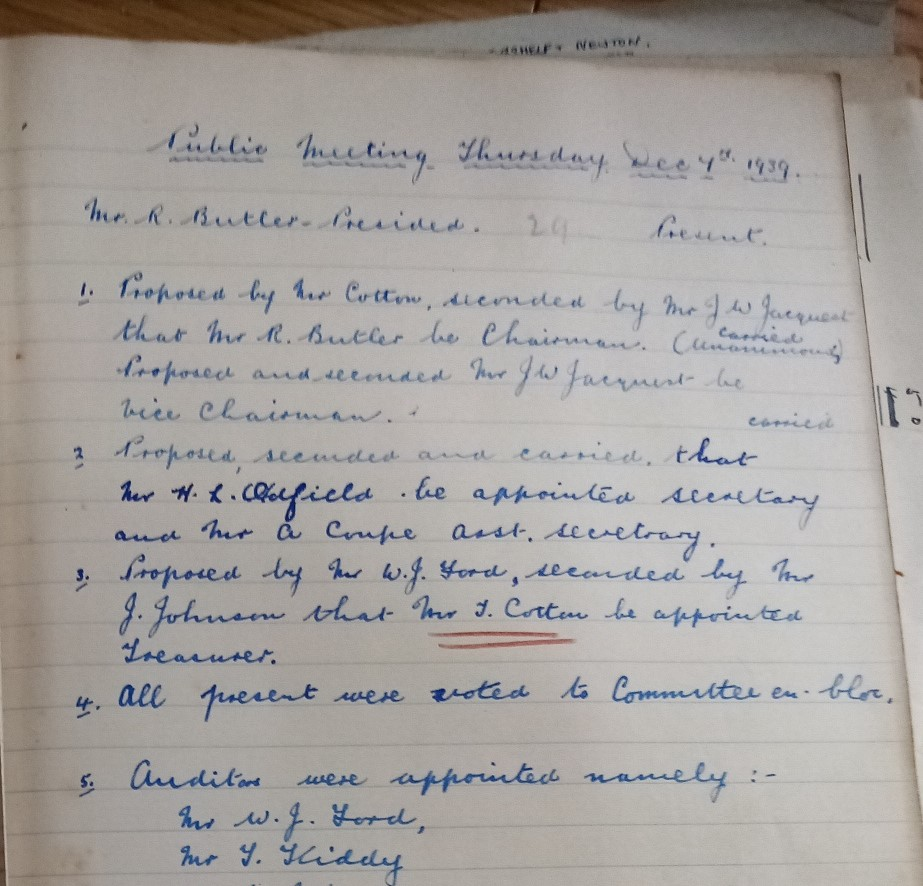 NEWTON.
Public Meeting Thursday Dec 4th. 1939.
Mr. R. Butler - Presided. 29 Present.
1. Proposed by Mr Cotton, seconded by Mr J W Jacquest
that Mr R. Butler be Chairman. (carried Unanimously)
Proposed and seconded Mr JW Jacquest be
Vice Chairman. carried
2 Proposed, seconded and carried. that
Mr H. L. Oldfield. be appointed secretary
and Mr A Coupe asst. secretrary.
3. Proposed by Mr W.J. Ford, seconded by Mr
J. Johnson that Mr T. Cotton be appointed
Treasurer.
4. All present were voted to Committee en-bloc.
5. Auditors were appointed namely :-
Mr W.J. Ford,
Mr T. Kiddy